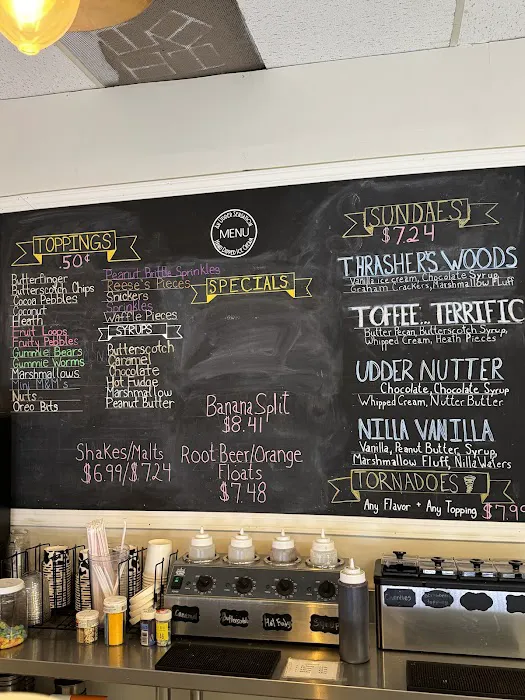 TOPPINGS
.50¢
Butterfinger
Butterscotch Chips
Cocoa Pebbles
Coconut
Heath
Fruit Loops
Fruity Pebbles
Gummie Bears
Gummie Worms
Marshmallows
Mini M&M's
Nuts
Oreo Bits
Peanut Brittle Sprinkles
Reese's Pieces
Snickers
Sprinkles
Waffle Pieces
SYRUPS
Butterscotch
Caramel
Chocolate
Hot Fudge
Marshmallow
Peanut Butter
Shakes/Malts
$6.99/$7.24
AN UDDER SENSATION
MENU
HAND DIPPED ICE CREAM
SPECIALS
Banana Split
$8.41
Root Beer/Orange
Floats
$7.48
SUNDAES
$7.24
THRASHER'S WOODS
Vanilla ice cream, Chocolate Syrup,
Graham Crackers, Marshmallow Fluff
TOFFEE... TERRIFIC
Butter Pecan, Butterscotch Syrup,
Whipped Cream, Heath Pieces
UDDER NUTTER
Chocolate, Chocolate Syrup
Whipped Cream, Nutter Butter
NILLA VANILLA
Vanilla, Peanut Butter Syrup
Marshmallow Fluff, Nilla Wafers
TORNADOES
Any Flavor + Any Topping $7.99
Caramel
Butterscotch
Hot Fudge
Cherries